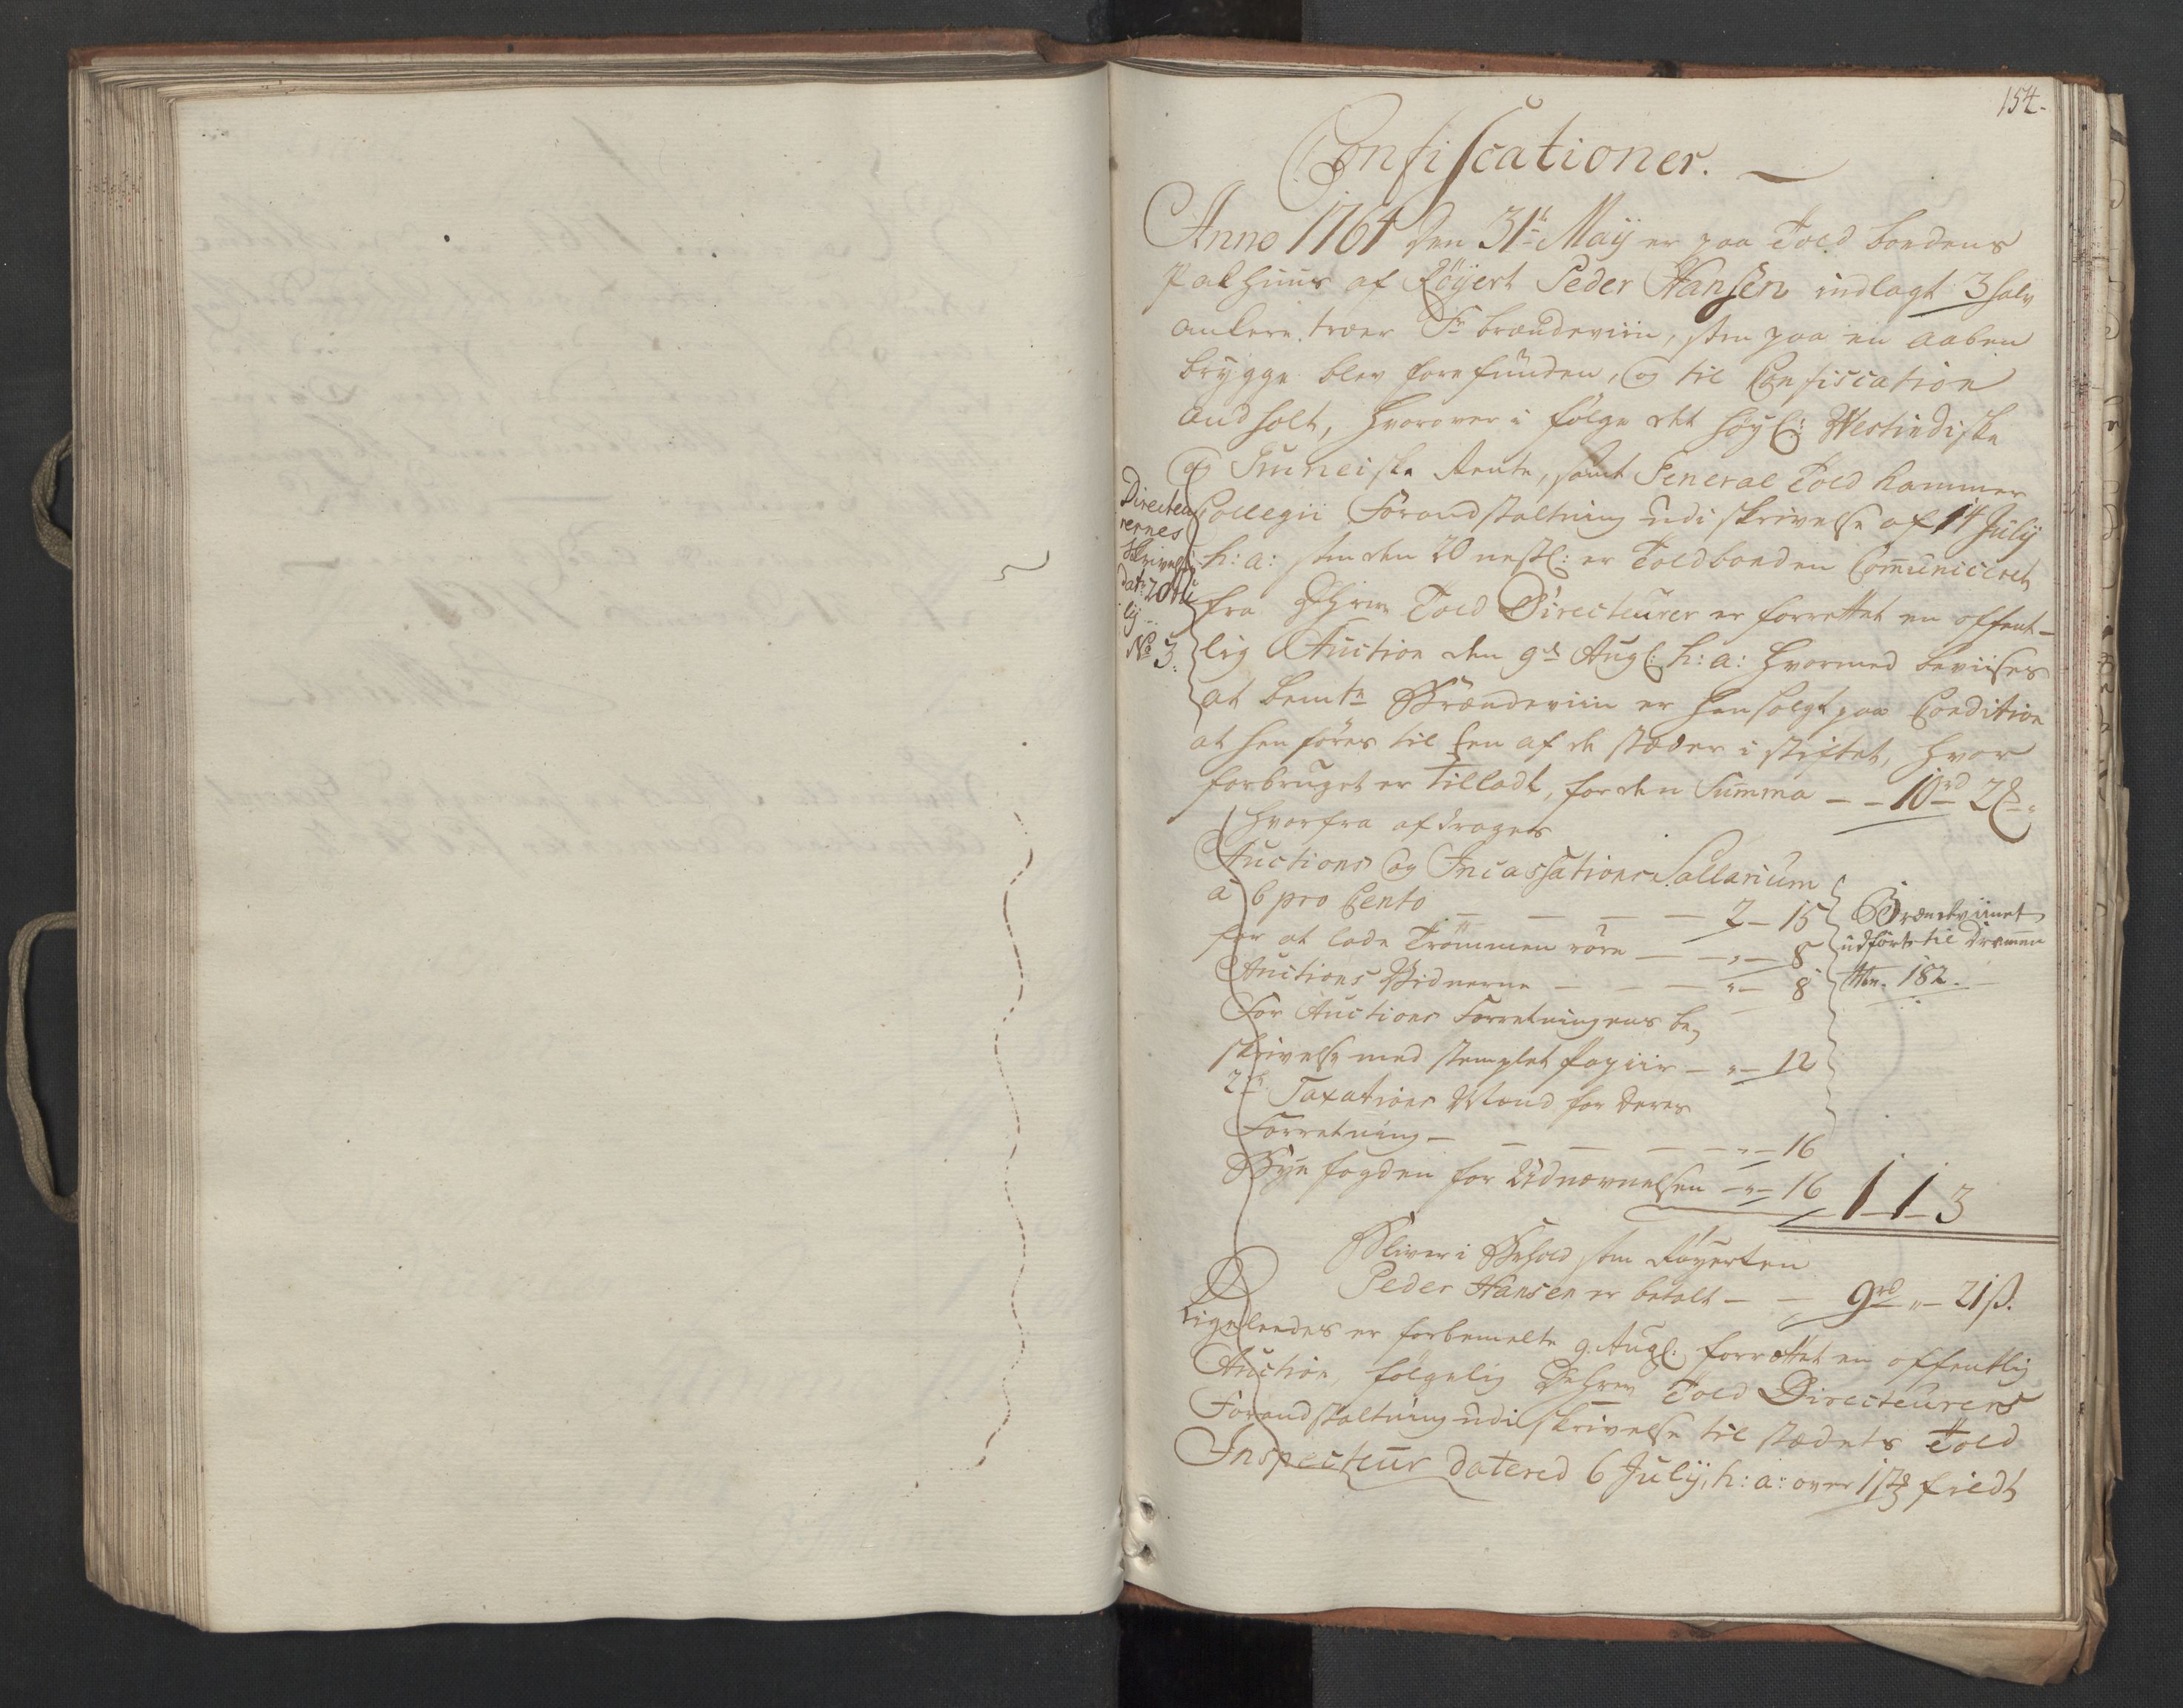 154.
Confiscationer.
Anno 1764 den 31te Maij er paa Told bondens
Pakhuus af Röyert Peder Hansen indlagt 3 halv
ankere træer Fr brændeviin, som paa en aaben
brygge blev forefunden, og til Confiscation
andholt, hvorover i fölge det höyl: Westindiske
og Guineiske Rente, samt General Told Kammer
Collegii Foranstaltning udi skrivelse af 14 Julij
h: a: som den 20 nestl: er Toldboden Communiceret
fra DHrrer Told Directeurer er forrettet en offent-
lig Auction den 9de Augl: h: a: hvormed beviises
at bemte Brændeviin er hensolgt paa Condition
at henföres til een af de stæder i stiftet, hvor
forbruget er tilladt, for den Summa - - 10rd 2
Directeu
rernes
Skrivelse
dat: 20 Ju
lij
No 3.
hvorfra afdrages
Auctions og Incassations Sallarium
à 6 pro Cento - - - - 2 - 15
for at lade Trommen röre - - „ - 8
Auctions Vidnerne - - - „ - 8
For Auctions Forretningens be,
skrivelse med stemplet Papiir - „ - 12
2de Taxations Mænd for deres
Forretning - - - - - „ - 16
Bye fogden for Udnævnelsen - „ - 16 1 - 1 - 3
Brændeviinet
udfört til Drammen
No. 182.
Bliver i Behold som Röyerten
Peder Hansen er betalt - - 9rd „ - 21 ß.
Ligeleedes er forbemelte 9. Augl: forrettet en offentlig
Auction, fölgelig DeHrrer Told Directeurers
Foranstaltning udi skrivelse til stædets Told
Inspecteur datered 6 Julij, h: a: over 1 st fiedt